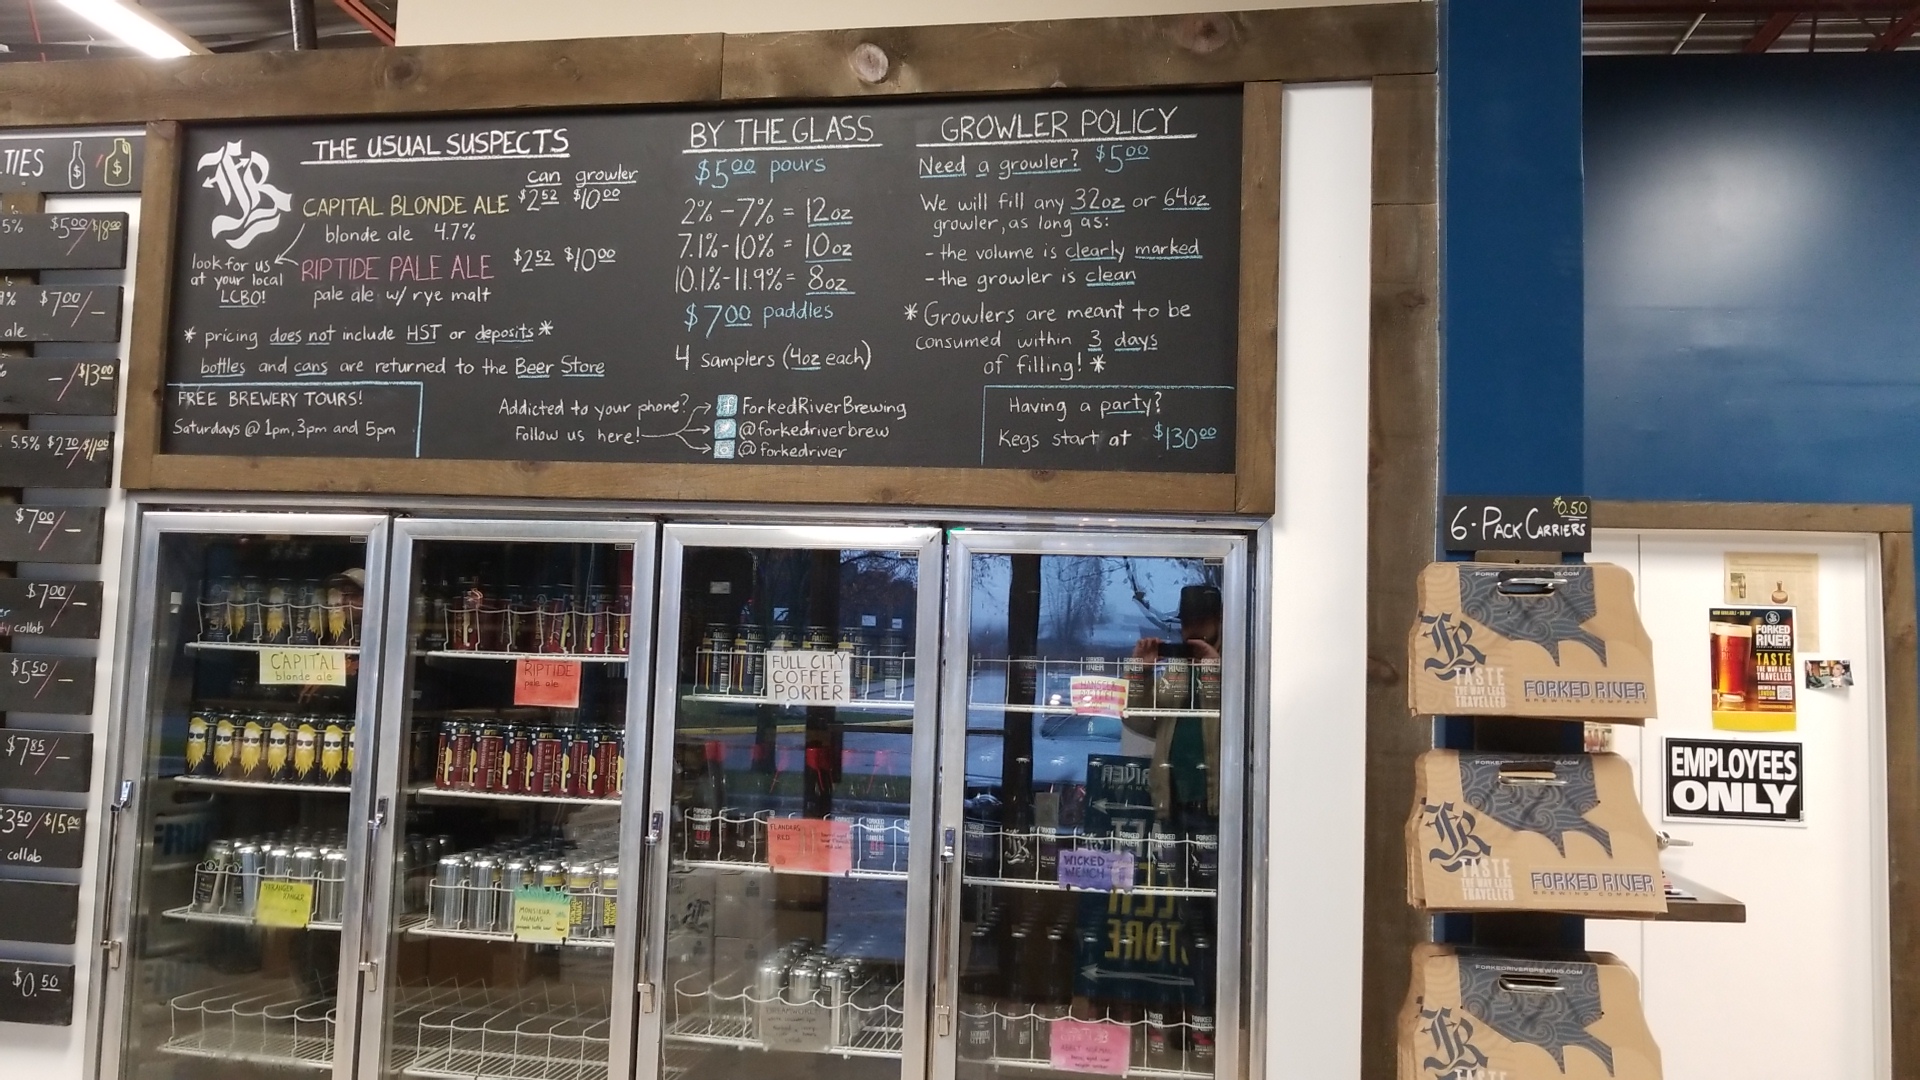 TIES
5% $5.00/$18.00
9% $7.00/—
ale
—/$13.00
5.5% $2.70/$11.00
$7.00/—
$7.00/—
collab
$5.50/—
$7.85/—
$3.50/$15.00
collab
$0.50
THE USUAL SUSPECTS
can growler
CAPITAL BLONDE ALE $2.52 $10.00
blonde ale 4.7%
RIPTIDE PALE ALE $2.52 $10.00
pale ale w/ rye malt
look for us
at your local
LCBO!
* pricing does not include HST or deposits *
bottles and cans are returned to the Beer Store
FREE BREWERY TOURS!
Saturdays @ 1pm, 3pm and 5pm
BY THE GLASS
$5.00 pours
2% - 7% = 12oz
7.1% - 10% = 10oz
10.1% - 11.9% = 8oz
$7.00 paddles
4 samplers (4oz each)
Addicted to your phone?
Follow us here!
ForkedRiverBrewing
@forkedriverbrew
@forkedriver
GROWLER POLICY
Need a growler? $5.00
We will fill any 32oz or 64oz
growler, as long as:
- the volume is clearly marked
- the growler is clean
* Growlers are meant to be
consumed within 3 days
of filling! *
Having a party?
Kegs start at $130.00
CAPITAL
blonde ale
RIPTIDE
pale ale
FULL CITY
COFFEE
PORTER
FLANDERS
RED
WICKED
WENCH
MONSIEUR
ANANAS
$0.50
6-PACK CARRIERS
TASTE
THE WAY LESS
TRAVELLED
FORKED RIVER
BREWING COMPANY
TASTE
THE WAY LESS
TRAVELLED
FORKED RIVER
BREWING COMPANY
FORKEDRIVERBREWING.COM
TASTE
FORKED
RIVER
TASTE
THE WAY LESS
TRAVELLED
EMPLOYEES
ONLY